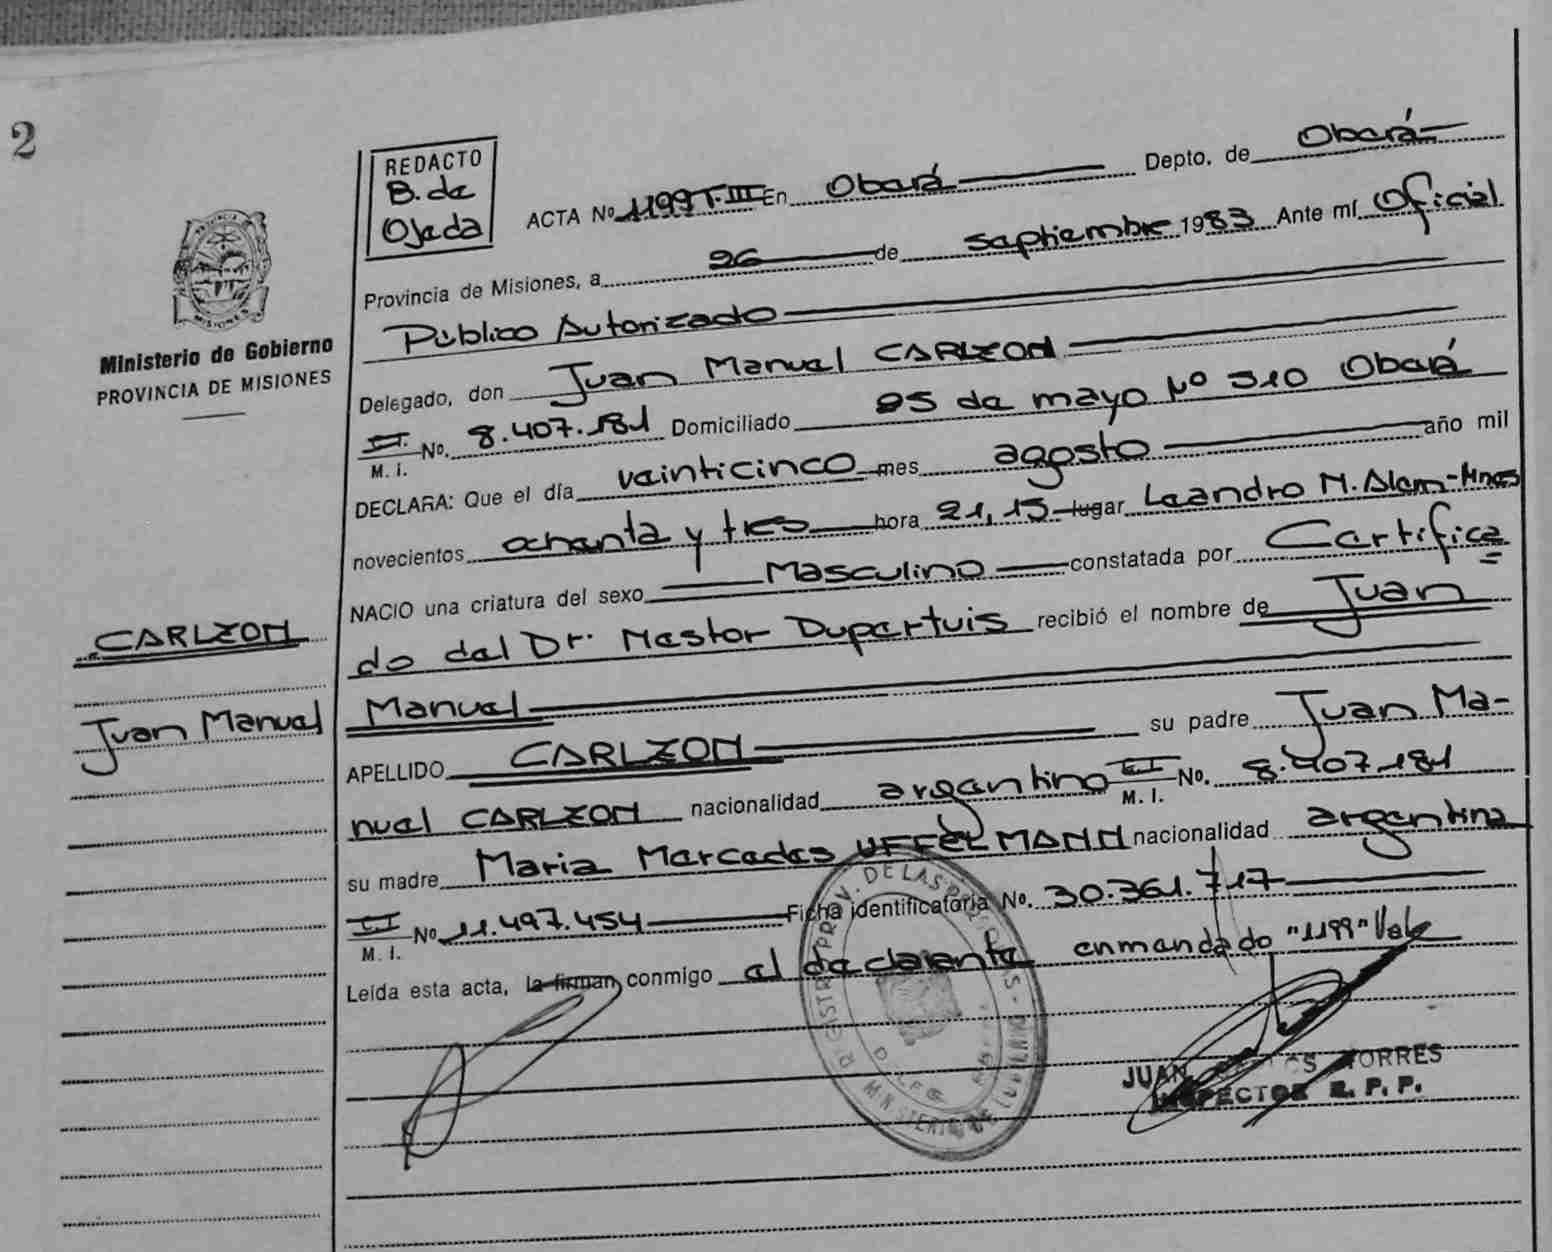 2
REDACTO
B. de
Ojeda
ACTA Nº 1199 T. III En Oberá Depto. de Oberá
Provincia de Misiones, a 26 de septiembre 1983 Ante mí Oficial
Público Autorizado
Ministerio de Gobierno
PROVINCIA DE MISIONES
Delegado, don Juan Manuel CARLZON
M. I. No. 8.407.181 Domiciliado 25 de mayo Nº 310 Oberá
DECLARA: Que el día veinticinco mes agosto año mil
novecientos ochenta y tres hora 21,15 lugar Leandro N. Alem-Mnes
NACIO una criatura del sexo Masculino constatada por Certifica
do del Dr. Nestor Dupertuis recibió el nombre de Juan
Manuel
CARLZON
Juan Manuel
APELLIDO CARLZON su padre Juan Ma-
nuel CARLZON nacionalidad argentino M. I. No. 8.407.181
su madre Maria Mercedes UFFELMANN nacionalidad argentina
M. I. No 11.497.454 Ficha identificatoria No. 30.361.717
Leída esta acta, la firman conmigo el declarante enmendado "1199" Vale
REGISTR. PROV. DE LAS PERSONAS
MINISTERIO DE
JUAN TORRES
INSPECTOR R. P. P.